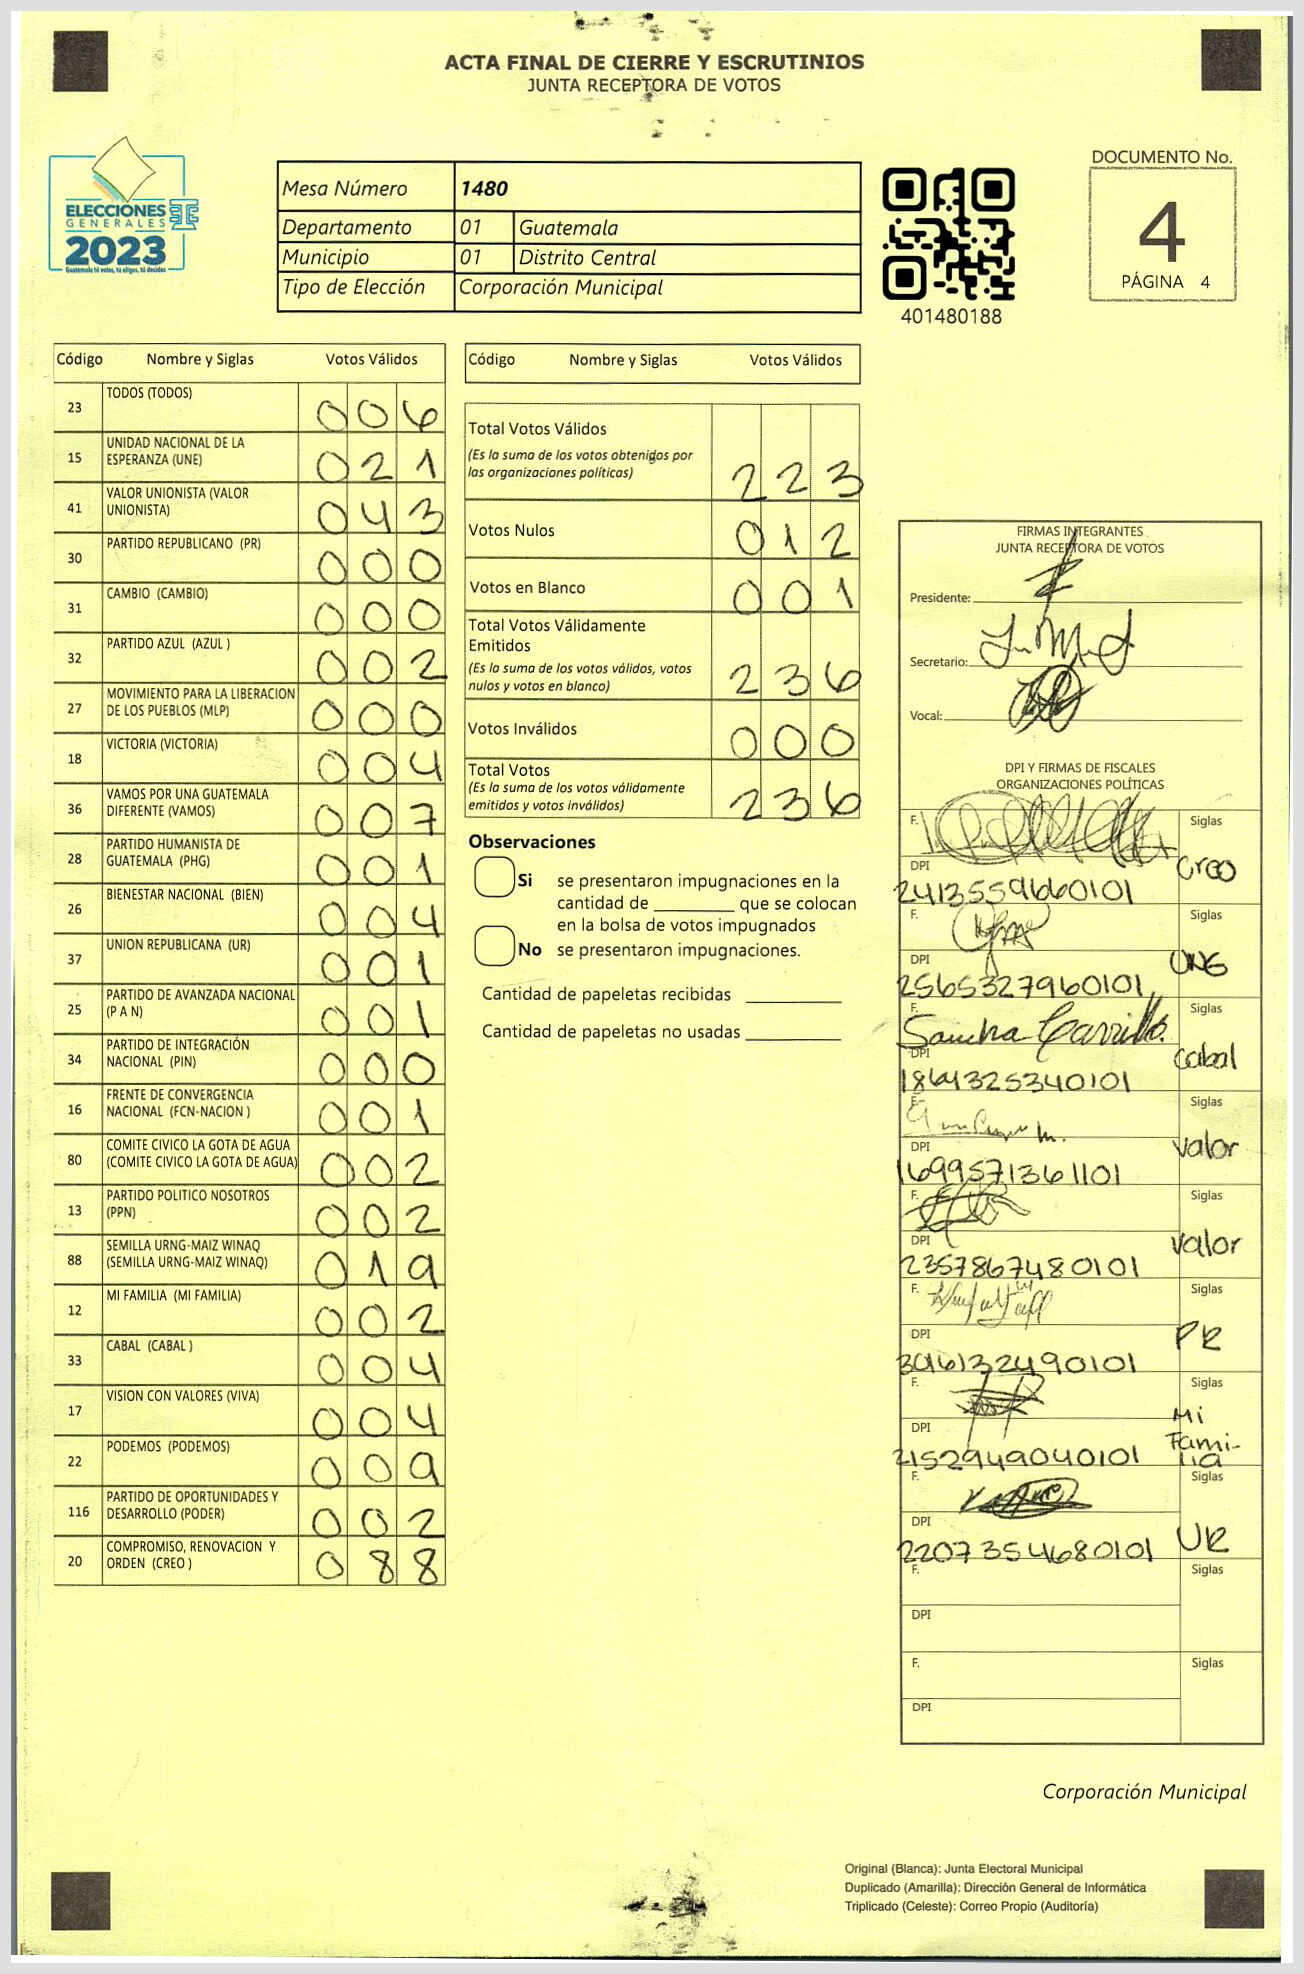 ACTA FINAL DE CIERRE Y ESCRUTINIOS
JUNTA RECEPTORA DE VOTOS
ELECCIONES
GENERALES
2023
Guatemala tú votas, tú eliges, tú decides
Mesa Número 1480
Departamento 01 Guatemala
Municipio 01 Distrito Central
Tipo de Elección Corporación Municipal
401480188
DOCUMENTO No.
4
PÁGINA 4
Código Nombre y Siglas Votos Válidos
23 TODOS (TODOS) 006
15 UNIDAD NACIONAL DE LA
ESPERANZA (UNE) 021
41 VALOR UNIONISTA (VALOR
UNIONISTA) 043
30 PARTIDO REPUBLICANO (PR) 000
31 CAMBIO (CAMBIO) 000
32 PARTIDO AZUL (AZUL ) 002
27 MOVIMIENTO PARA LA LIBERACION
DE LOS PUEBLOS (MLP) 000
18 VICTORIA (VICTORIA) 004
36 VAMOS POR UNA GUATEMALA
DIFERENTE (VAMOS) 007
28 PARTIDO HUMANISTA DE
GUATEMALA (PHG) 001
26 BIENESTAR NACIONAL (BIEN) 004
37 UNION REPUBLICANA (UR) 001
25 PARTIDO DE AVANZADA NACIONAL
(P A N) 001
34 PARTIDO DE INTEGRACIÓN
NACIONAL (PIN) 000
16 FRENTE DE CONVERGENCIA
NACIONAL (FCN-NACION ) 001
80 COMITE CIVICO LA GOTA DE AGUA
(COMITE CIVICO LA GOTA DE AGUA) 002
13 PARTIDO POLITICO NOSOTROS
(PPN) 002
88 SEMILLA URNG-MAIZ WINAQ
(SEMILLA URNG-MAIZ WINAQ) 019
12 MI FAMILIA (MI FAMILIA) 002
33 CABAL (CABAL ) 004
17 VISION CON VALORES (VIVA) 004
22 PODEMOS (PODEMOS) 009
116 PARTIDO DE OPORTUNIDADES Y
DESARROLLO (PODER) 002
20 COMPROMISO, RENOVACION Y
ORDEN (CREO ) 088
Código Nombre y Siglas Votos Válidos
Total Votos Válidos
(Es la suma de los votos obtenigos por
las organizaciones políticas) 223
Votos Nulos 012
Votos en Blanco 001
Total Votos Válidamente
Emitidos
(Es la suma de los votos válidos, votos
nulos y votos en blanco) 236
Votos Inválidos 000
Total Votos
(Es la suma de los votos válidamente
emitidos y votos inválidos) 236
Observaciones
Si se presentaron impugnaciones en la
cantidad de ________ que se colocan
en la bolsa de votos impugnados
No se presentaron impugnaciones.
Cantidad de papeletas recibidas
Cantidad de papeletas no usadas
FIRMAS INTEGRANTES
JUNTA RECEPTORA DE VOTOS
Presidente:
Secretario:
Vocal:
DPI Y FIRMAS DE FISCALES
ORGANIZACIONES POLÍTICAS
F. Siglas
DPI Creo
2413559660101
F. Siglas
DPI UNE
2565327960101
F. Siglas
Sandra Carrillo
DPI Cabal
1864325340101
F. Siglas
DPI Valor
1699571361101
F. Siglas
DPI Valor
2357867480101
F. Siglas
DPI PR
3046132490101
F. Siglas
DPI Mi
Fami-
lia
2152949040101
F. Siglas
DPI UR
2207354680101
F. Siglas
DPI
F. Siglas
DPI
Corporación Municipal
Original (Blanca): Junta Electoral Municipal
Duplicado (Amarilla): Dirección General de Informática
Triplicado (Celeste): Correo Propio (Auditoría)